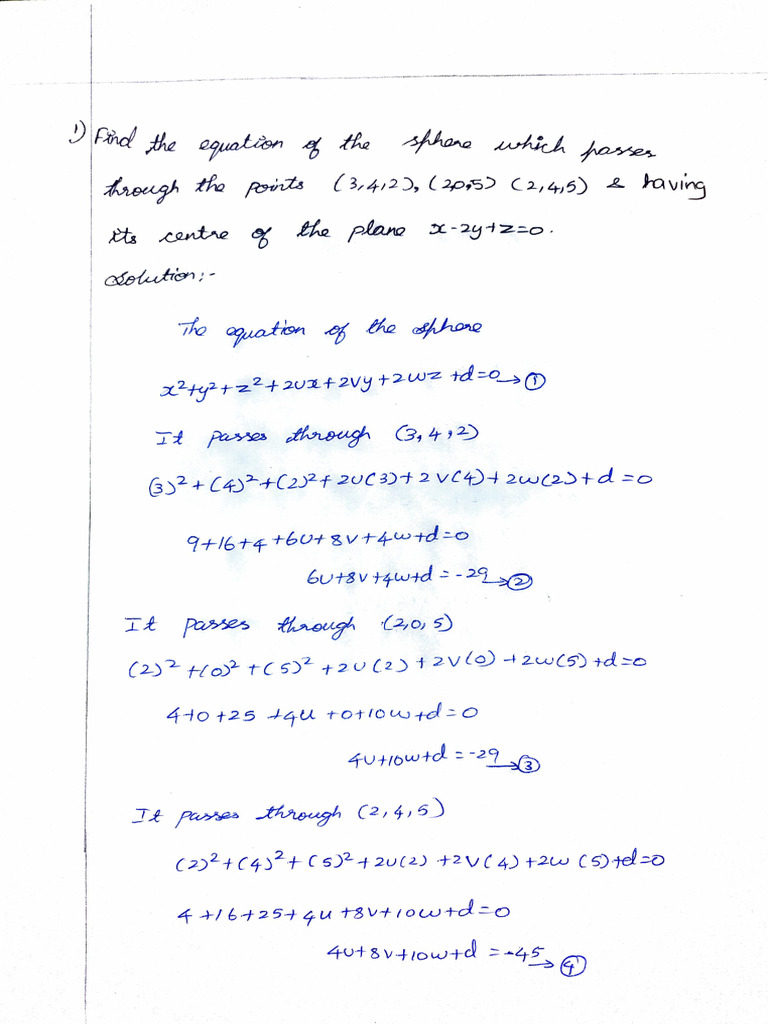 1) Find the equation of the sphere which passes
through the points (3,4,2), (20,5) (2,4,5) & having
its centre of the plane x-2y+z=0.
Solution:-
The equation of the sphere
x²+y²+z²+2ux+2vy+2wz+d=0→①
It passes through (3,4,2)
(3)²+(4)²+(2)²+2u(3)+2v(4)+2w(2)+d=0
9+16+4+6u+8v+4w+d=0
6u+8v+4w+d=-29→②
It passes through (2,0,5)
(2)²+(0)²+(5)²+2u(2)+2v(0)+2w(5)+d=0
4+0+25+4u+0+10w+d=0
4u+10w+d=-29→③
It passes through (2,4,5)
(2)²+(4)²+(5)²+2u(2)+2v(4)+2w(5)+d=0
4+16+25+4u+8v+10w+d=0
4u+8v+10w+d=-45→④